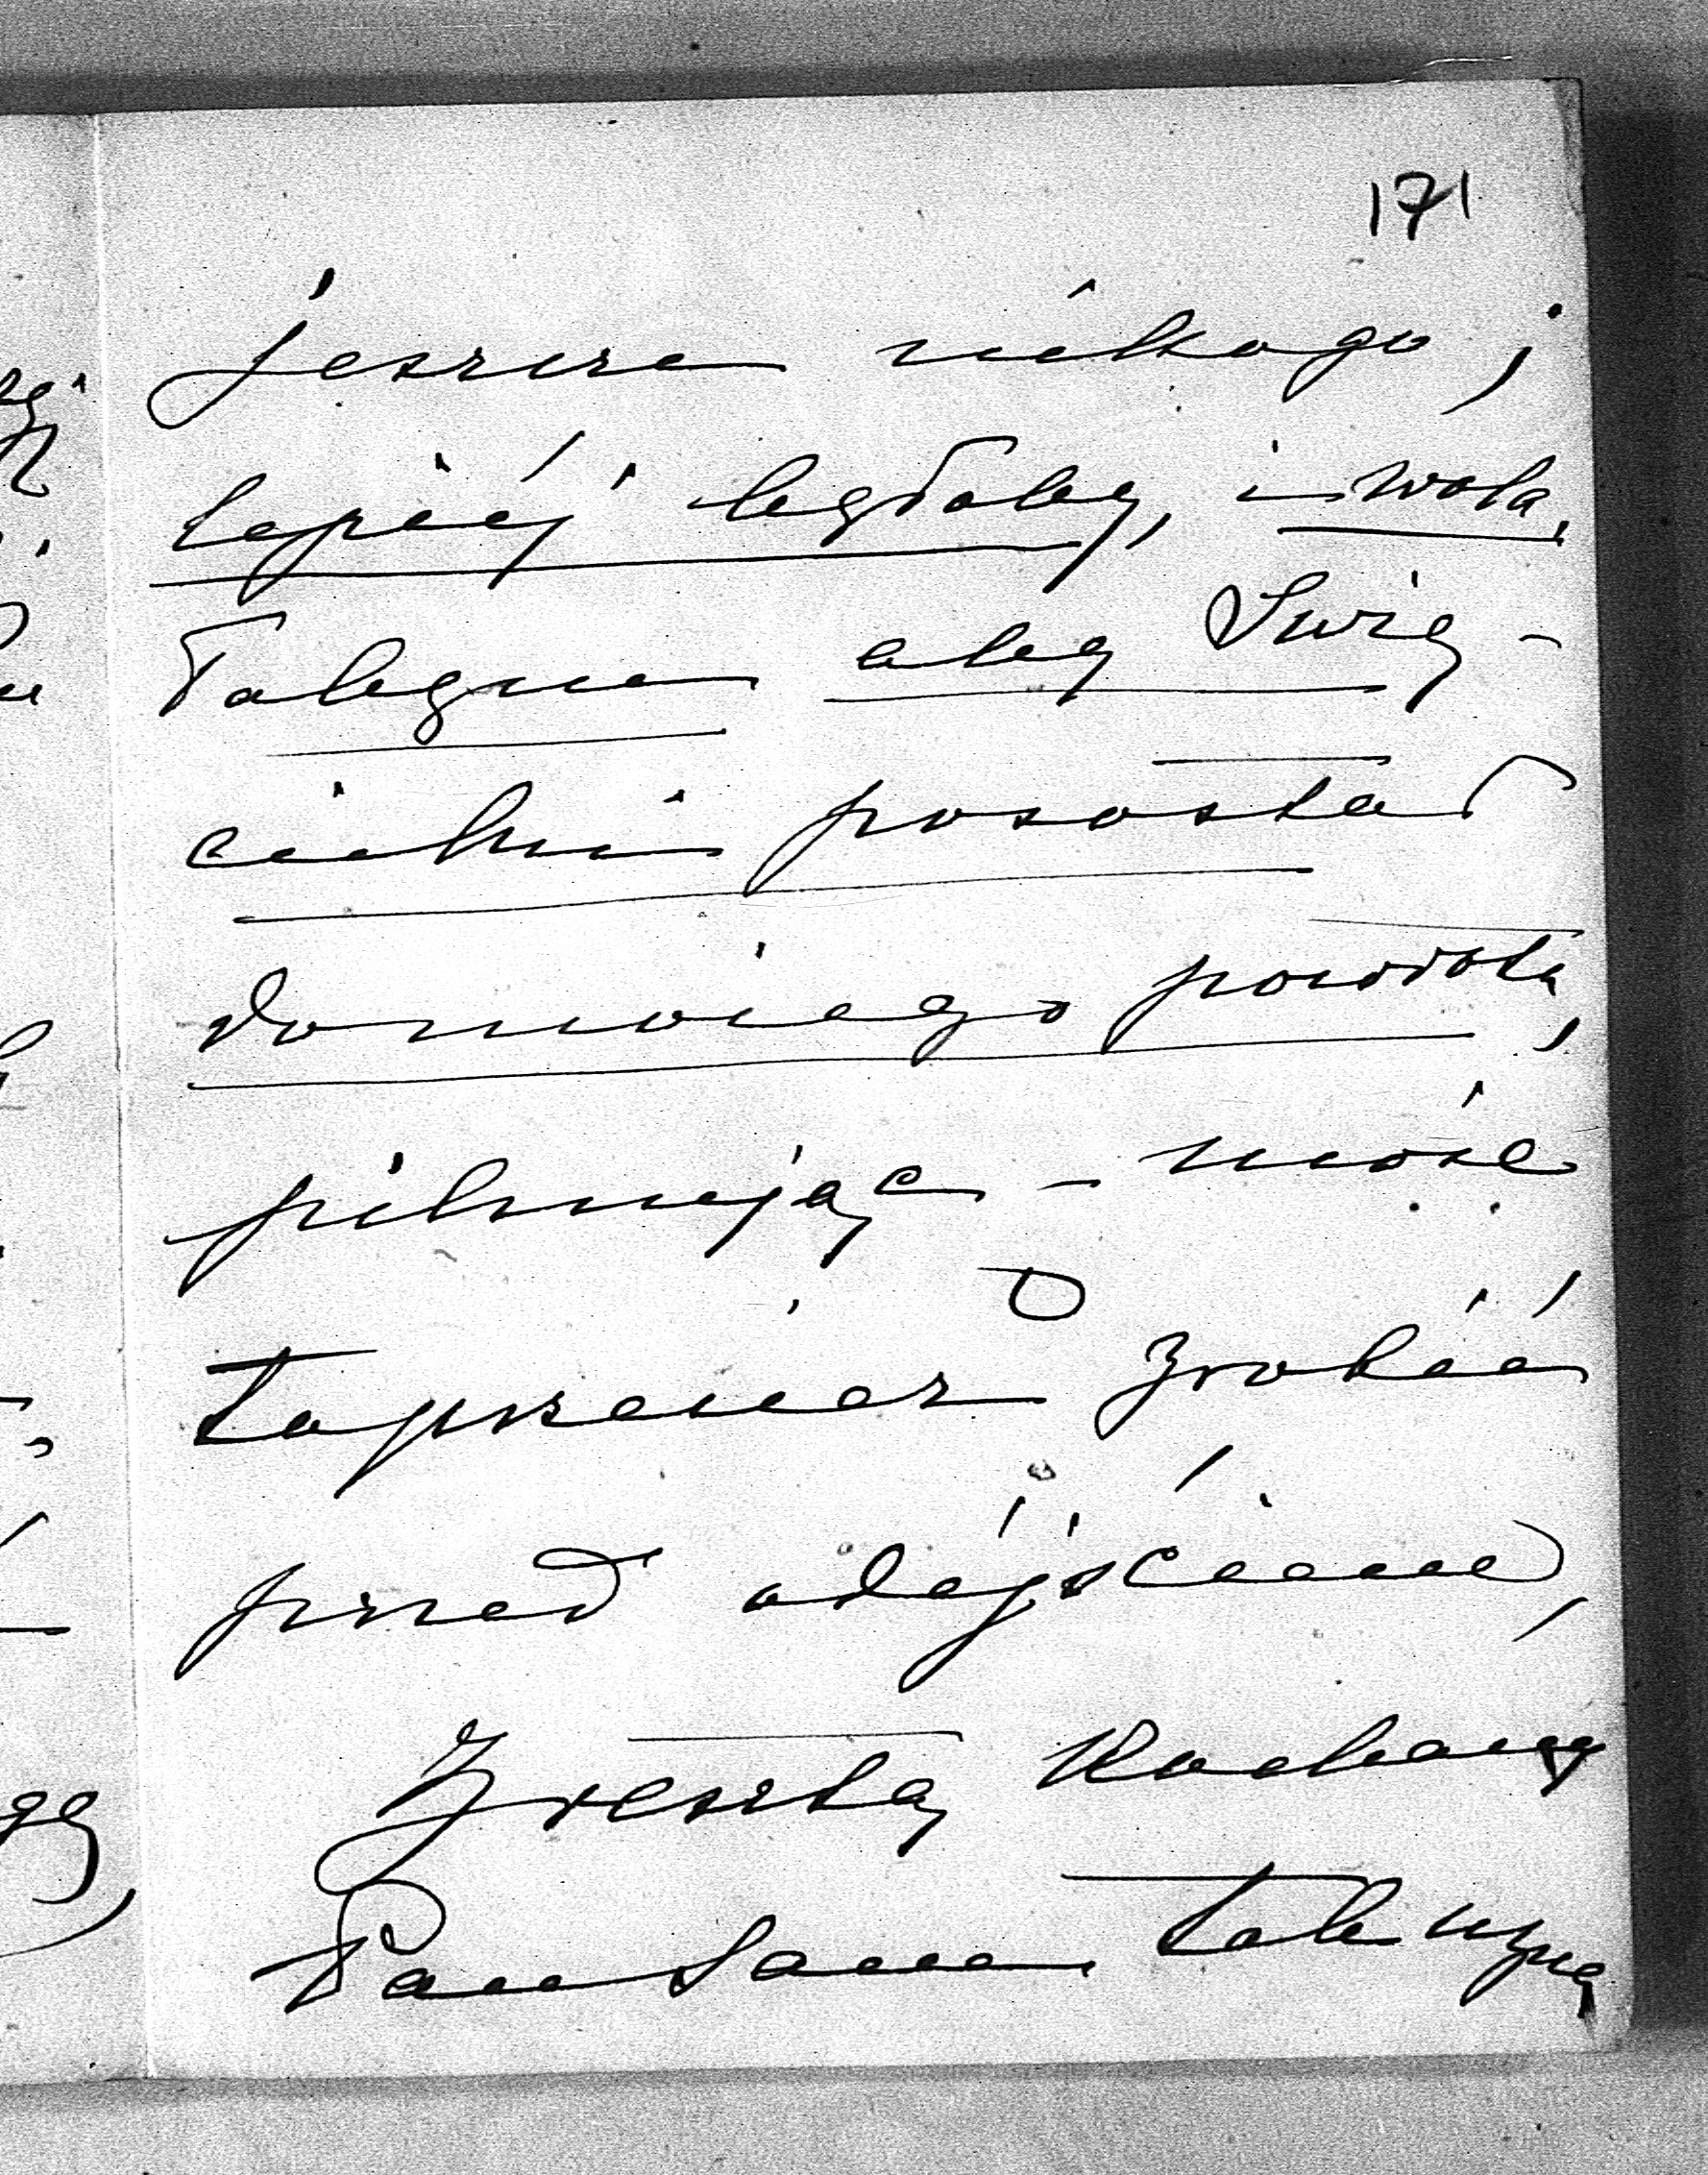 171
jeszcze nikogo;
lepiéj byłoby, i wola,
łabym aby Swię-
cicki pozostał
do mojego powrotu,
pilnując - może
to przecież zrobić
przed odejściem,
Zresztą Kochany
Pan sam tak